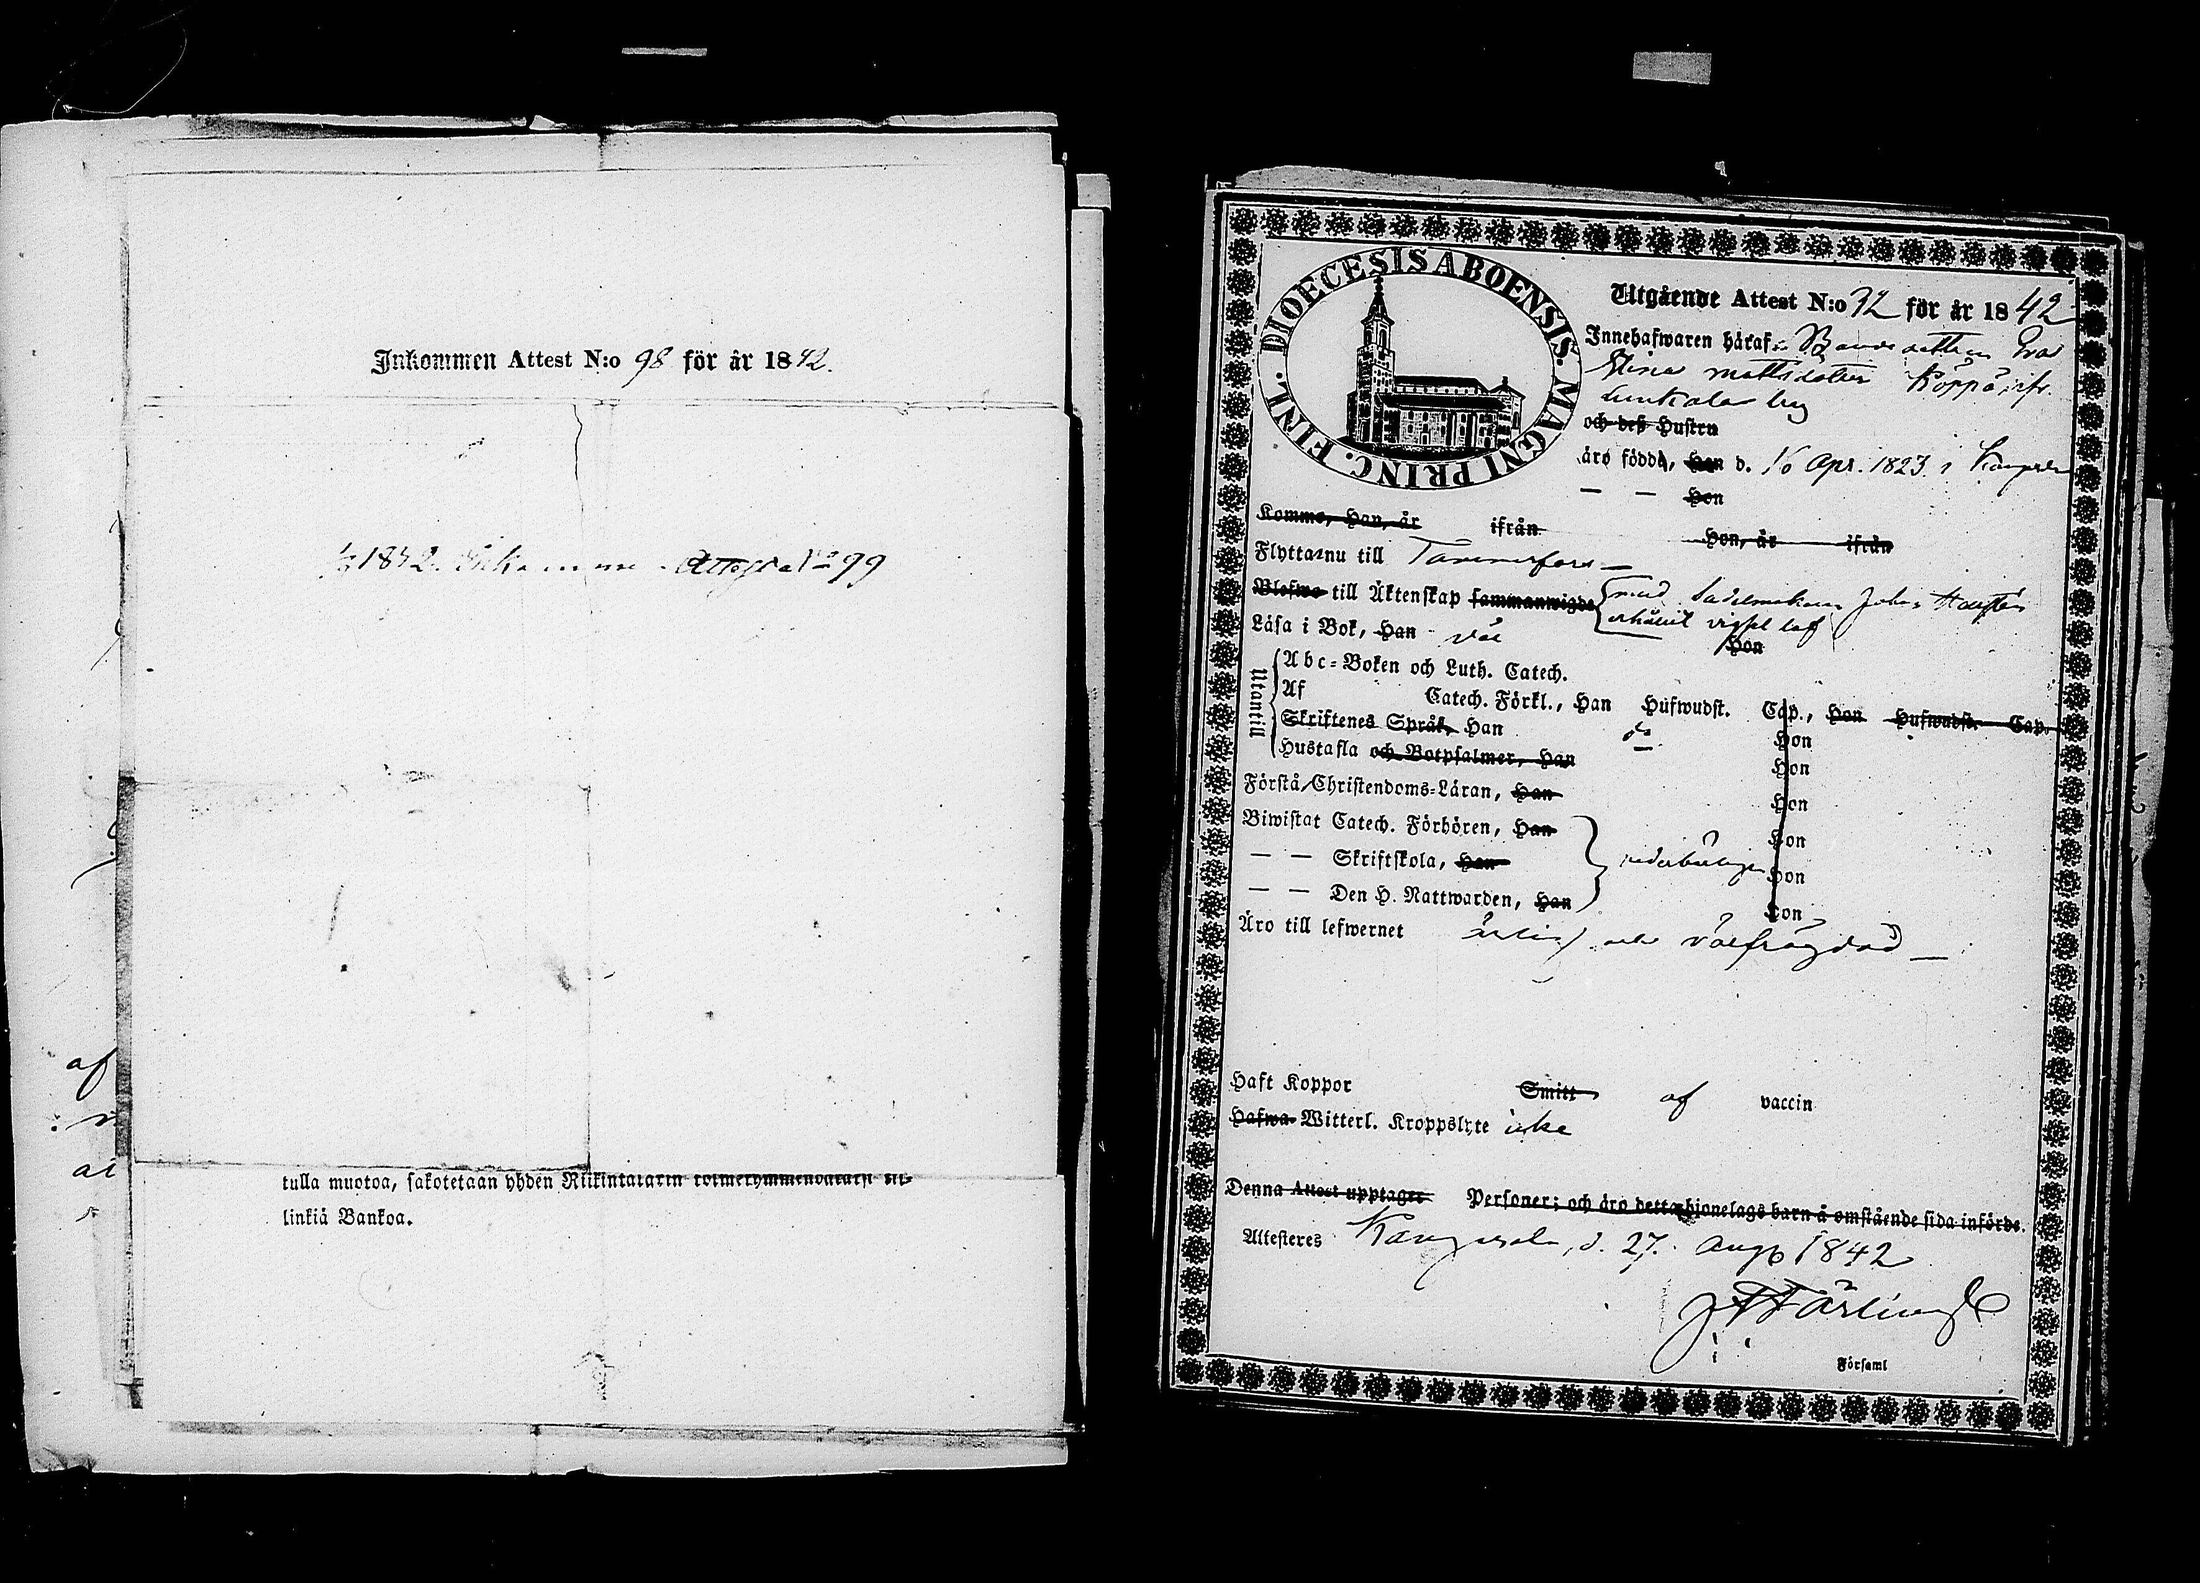 Inkommen Attest N:o 98 för år 1842.
1842. Attest No 99
af
ai
tulla muotoa, sakotetaan yhden Riikintalarin
linkiä Bankoa.
DIOECESIS ABOENSIS. MAGNI PRINC. FINL.
Utgående Attest N:o 72 för år 1842
Innehafwaren häraf: Bondedottren Eva
Stina Mattsdotter
by
och deß Hustru
äro födde, Han d. 16 Apr. 1823 i Kangasala
— — Hon
Kommo, Han, år ifrån Hon, år ifrån
Flytta nu till Tammerfors —
Blefwo till Äktenskap sammanwigde med Sadelmakaren Johan
erhållit
Läsa i Bok, Han väl Hon
Utantill
Abc-Boken och Luth. Catech.
Af Catech. Förkl., Han Hufwudst. Cap., Hon Hufwudst. Cap.
Skriftenes Språk, Han Hon
Hustafla och Botpsalmer, Han Hon
Förstå Christendoms-Läran, Han Hon
Biwistat Catech. Förhören, Han Hon
— — Skriftskola, Han vederbörligen Hon
— — Den H. Nattwarden, Han Hon
Äro till lefwernet ärlig och välfrägdad —
Haft Koppor Smitt af vaccin
Hafwa Witterl. Kroppslyte icke
Denna Attest upptager Personer; och äro detta hionelags barn å omstående sida införde.
Attesteres Kangasala, d. 27. Aug. 1842
Församl